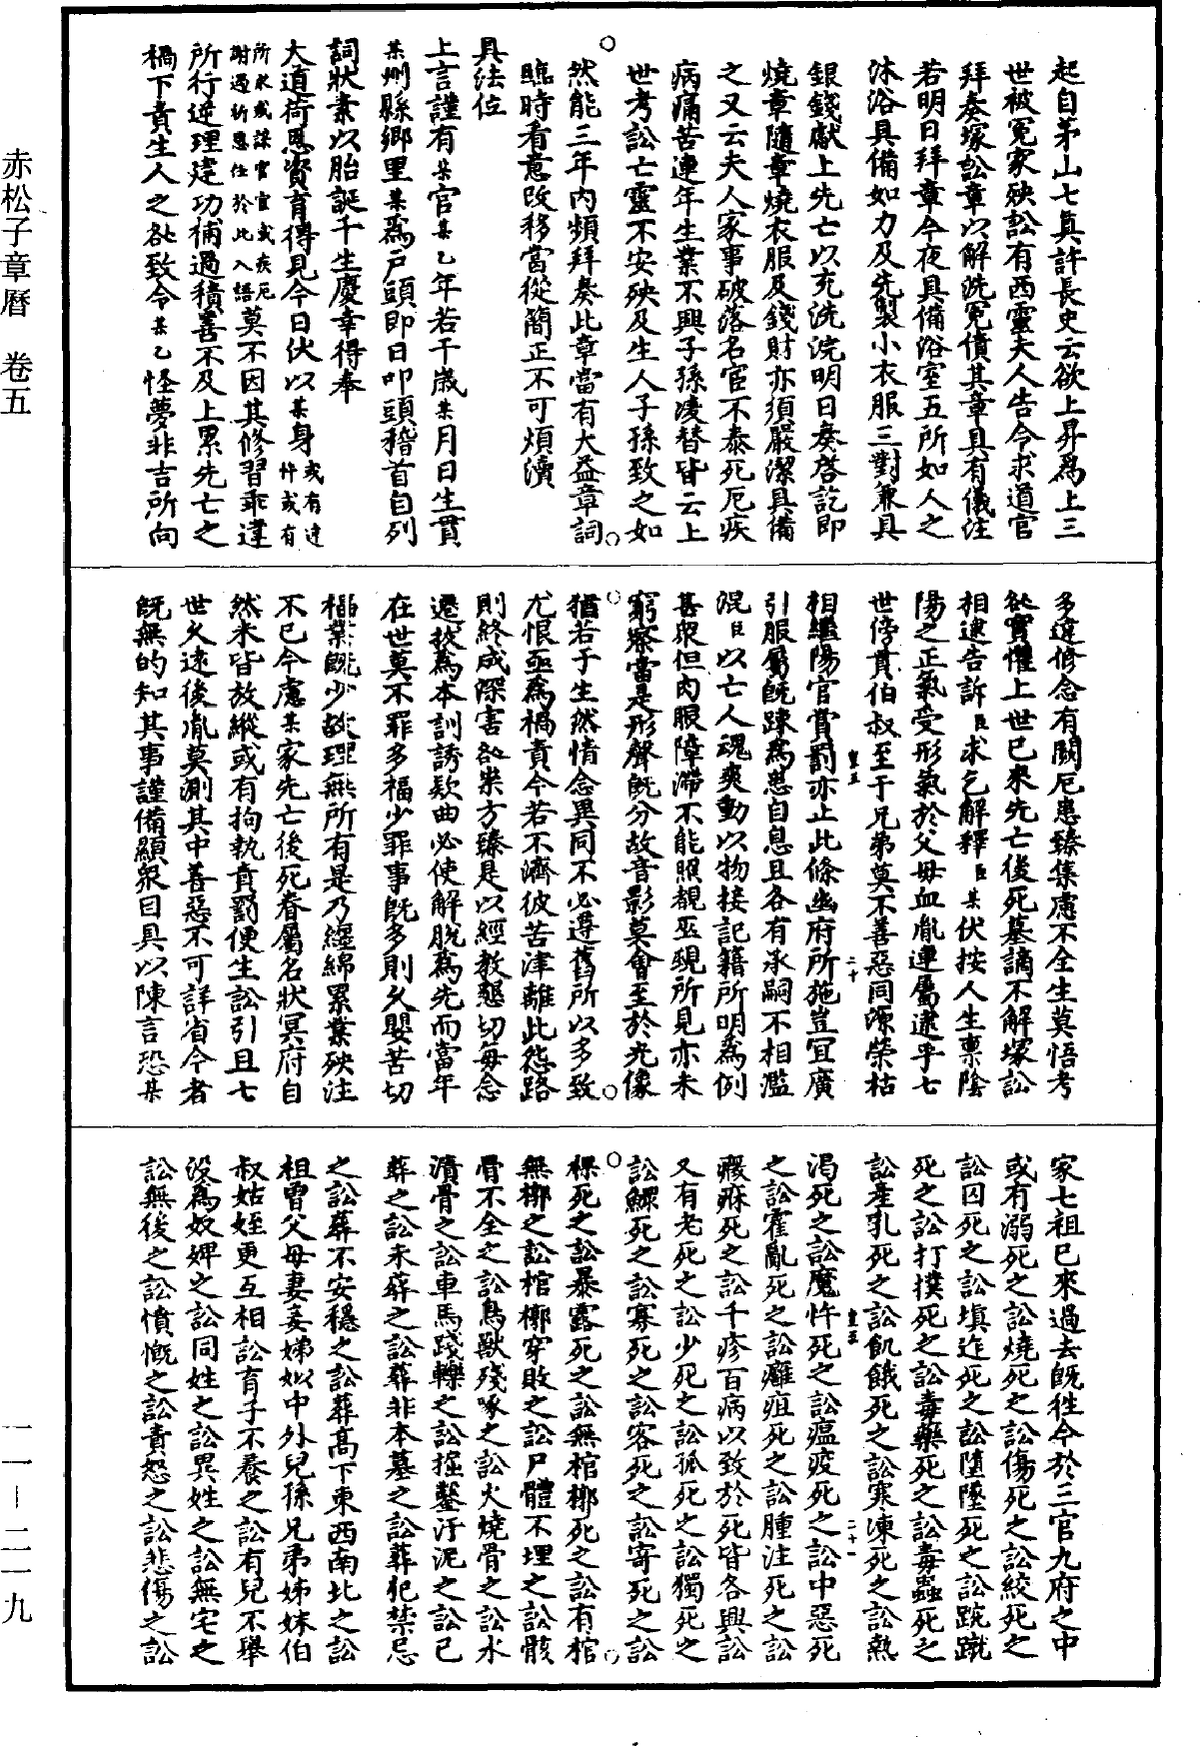 起自茅山七真許長史云欲上昇爲上三
世被冤家殃訟有西靈夫人告令求道官
拜奏塚訟章以解洗冤債其章具有儀注
若明日拜章今夜具備浴室五所如人之
沐浴具備如力及先製小衣服三對兼具
銀錢獻上先亡以充洗浣明日奏啓訖即
燒章隨章燒衣服及錢財亦須嚴潔具備
之又云夫人家事破落名宦不泰死厄疾
病痛苦連年生業不興子孫凌替皆云上
世考訟亡靈不安殃及生人子孫致之如
然能三年內頻拜奏此章當有大益章詞
臨時看意改移當從簡正不可煩瀆
具法位
上言謹有某官某乙年若干歲某月日生貫
某州縣鄉里某爲戶頭即日叩頭稽首自列
詞狀素以胎誕千生慶幸得奉
大道荷恩資育得見今日伏以某身或有違忤或有
所求或謀官宦或疾厄謝過祈恩任於此入語莫不因其修習乖違
所行逆理建功補過積善不及上累先亡之
禍下責生人之咎致令某乙怪夢非吉所向
多違修念有闕厄患臻集慮不全生莫悟考
咎實懼上世已來先亡後死墓謫不解塚訟
相逮告訴臣求乞解釋臣某伏按人生稟陰
陽之正氣受形氣於父母血胤連屬逮乎七
世傍貫伯叔至于兄弟莫不善惡同源榮枯
相繼陽官賞罰亦止此條幽府所施豈宜廣
引服屬既踈爲患自息且各有承嗣不相濫
混臣以亡人魂爽動以物接記籍所明爲例
甚衆但肉眼障滯不能照覩巫覡所見亦未
窮察當是形聲既分故音影莫會至於光像
猶若于生然情念異同不必遵舊所以多致
尤恨亟爲禍責今若不濟彼苦津離此怨路
則終成深害咎祟方臻是以經教懇切每念
遷拔爲本訓誘款曲必使解脫爲先而當年
在世莫不罪多福少罪事既多則久嬰苦切
福業既少故理無所有是乃纏綿累業殃注
不已今慮某家先亡後死眷屬名狀冥府自
然未皆放縱或有拘執責罰便生訟引且七
世久遠後胤莫測其中善惡不可詳省今者
既無的知其事謹備顯衆目具以陳言恐某
家七祖已來過去既徃今於三官九府之中
或有溺死之訟燒死之訟傷死之訟絞死之
訟囚死之訟填迮死之訟墮墜死之訟踠蹴
死之訟打撲死之訟毒藥死之訟毒蟲死之
訟產乳死之訟飢餓死之訟寒凍死之訟熱
渴死之訟魔忤死之訟瘟疫死之訟中惡死
之訟霍亂死之訟癰疽死之訟腫注死之訟
瘢痳死之訟千疹百病以致於死皆各興訟
又有老死之訟少死之訟孤死之訟獨死之
訟鰥死之訟寡死之訟客死之訟寄死之訟
裸死之訟暴露死之訟無棺槨死之訟有棺
無槨之訟棺槨穿敗之訟尸體不埋之訟骸
骨不全之訟鳥獸殘啄之訟火燒骨之訟水
漬骨之訟車馬踐轢之訟掘鑿汙泥之訟已
葬之訟未葬之訟葬非本墓之訟葬犯禁忌
之訟葬不安穩之訟葬高下東西南北之訟
祖曾父母妻妾娣姒中外兒孫兄弟姊妹伯
叔姑姪更互相訟育子不養之訟有兒不舉
沒爲奴婢之訟同姓之訟異姓之訟無宅之
訟無後之訟憤慨之訟責怒之訟悲傷之訟
赤松子章曆　卷五
一一—二一九